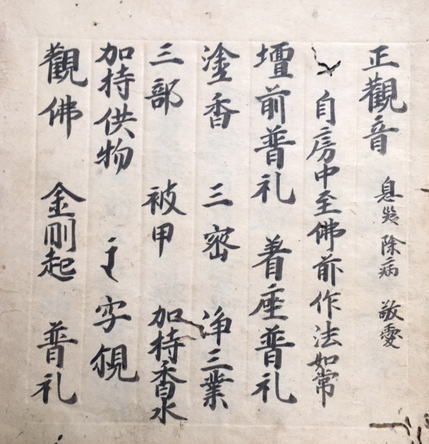 正觀音 息災 除病 敬愛
自房中至佛前作法如常
壇前普礼 着座普礼
塗香 三密 浄三業
三部 被甲 加持香水
加持供物 字覌
觀佛 金剛起 普礼